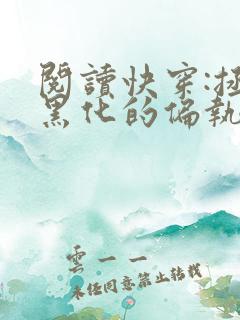 閱讀快穿:拯
黑化的偏執
雲一一
未經同意禁止轉載